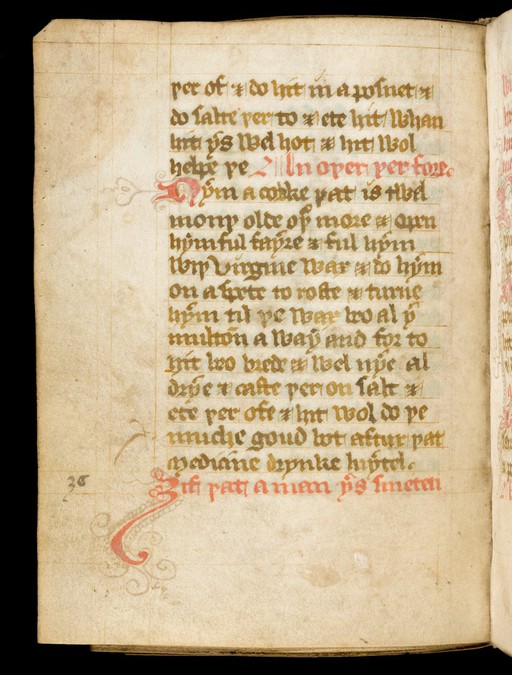 þer of & do hit in a posnet &
do salte þer to & ete hit whan
hit ys wel hot & hit wol
helpe þe An oþer þer fore
Nym a cokke þat is twel
monþ olde oþ more & open
hym ful fayre & ful hym
wiþ virgine wax & do hym
on a spete to roste & turne
hym til þe wax beo al y
multon a way and for to
hit beo brede & wel nye al
drye & caste þer on salt &
ete þer ofe & hit wol do þe
muche goud bot aftur þat
medicine drynke luytel.
Ʒif þat a man ys smeten
36